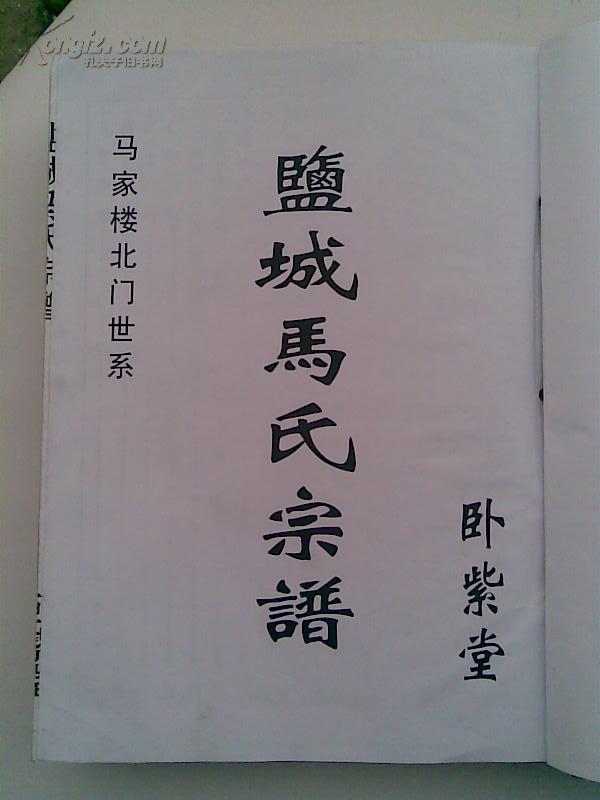 kongfz.com
孔夫子旧书网
卧紫堂
鹽城馬氏宗譜
马家楼北门世系